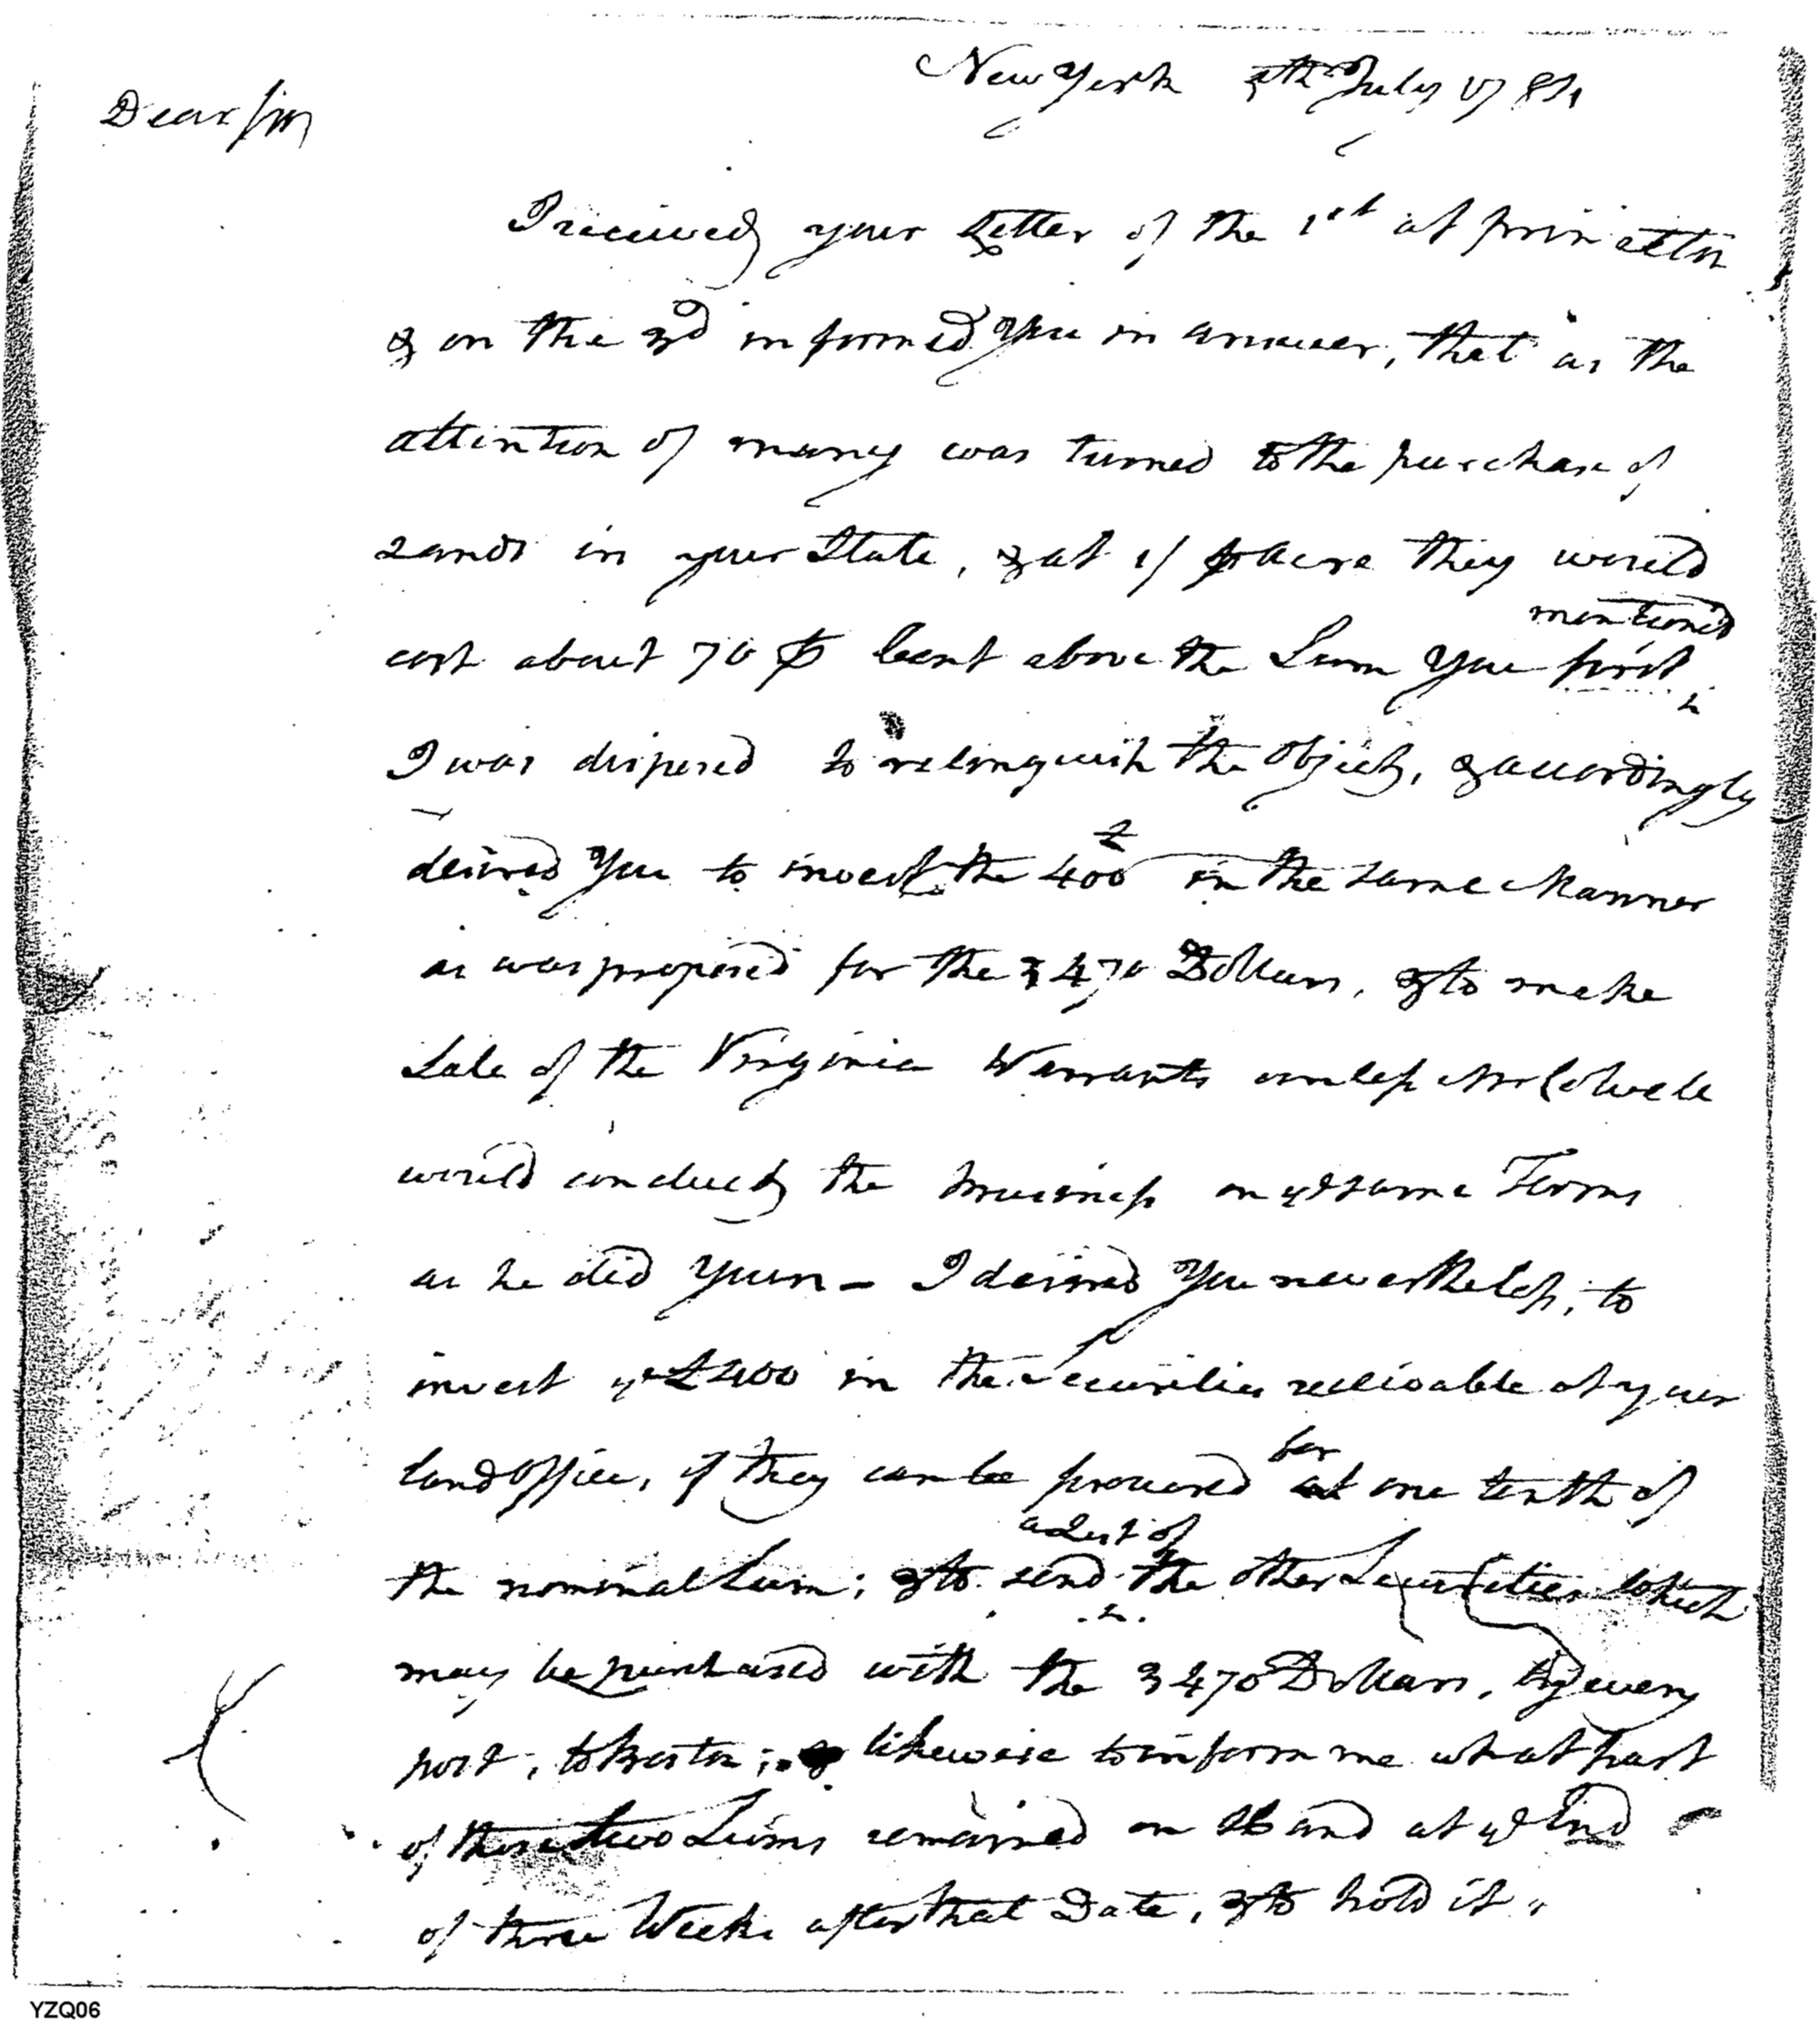 New York 5th July 1784
Dear Sir
I received your Letter of the 1st at princetton
& on the 3d informed You in answer, that as the
attention of many was turned to the purchase of
Lands in your State, & at 1/ p Acre they would
mentioned
cost about 70 p Cent above the Sum You first
I was disposed to relinquish the Object, & accordingly
desired You to invest the 400£ in the same Manner
as was proposed for the 3470 Dollars, & to make
Sale of the Virginia Warrants unless Mr Colwell
would conduct the business on ye same Terms
as he did Yours – I desired You nevertheless, to
invest ye £400 in the Securities receivable at your
land Office, if they can be procured
for
at one tenth of
a List of
the nominal Sum; & to send the other Securities which
may be purchased with the 3470 Dollars, by every
post, to Boston; & likewise to inform me what part
of these two Sums remained on Hand at ye End
of three Weeks after that Date, & to hold it
YZQ06